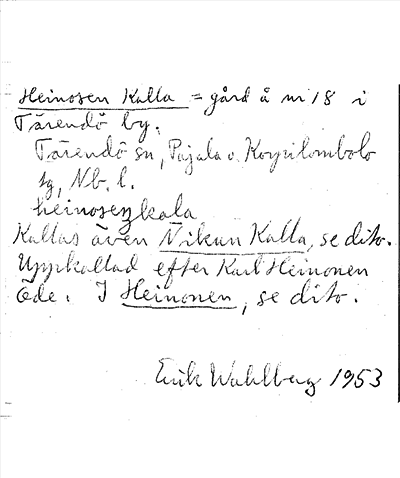 Heinosen Kalla = gård å nr 18 i
Tärendö by.
Tärendö sn, Pajala o. Korpilombolo
tg, Nb. l.
heinosenkala
Kallas även Nikun Kalla, se dito.
Uppkallad efter Karl Heinonen
Öde. I Heinonen, se dito.
Erik Wahlberg 1953